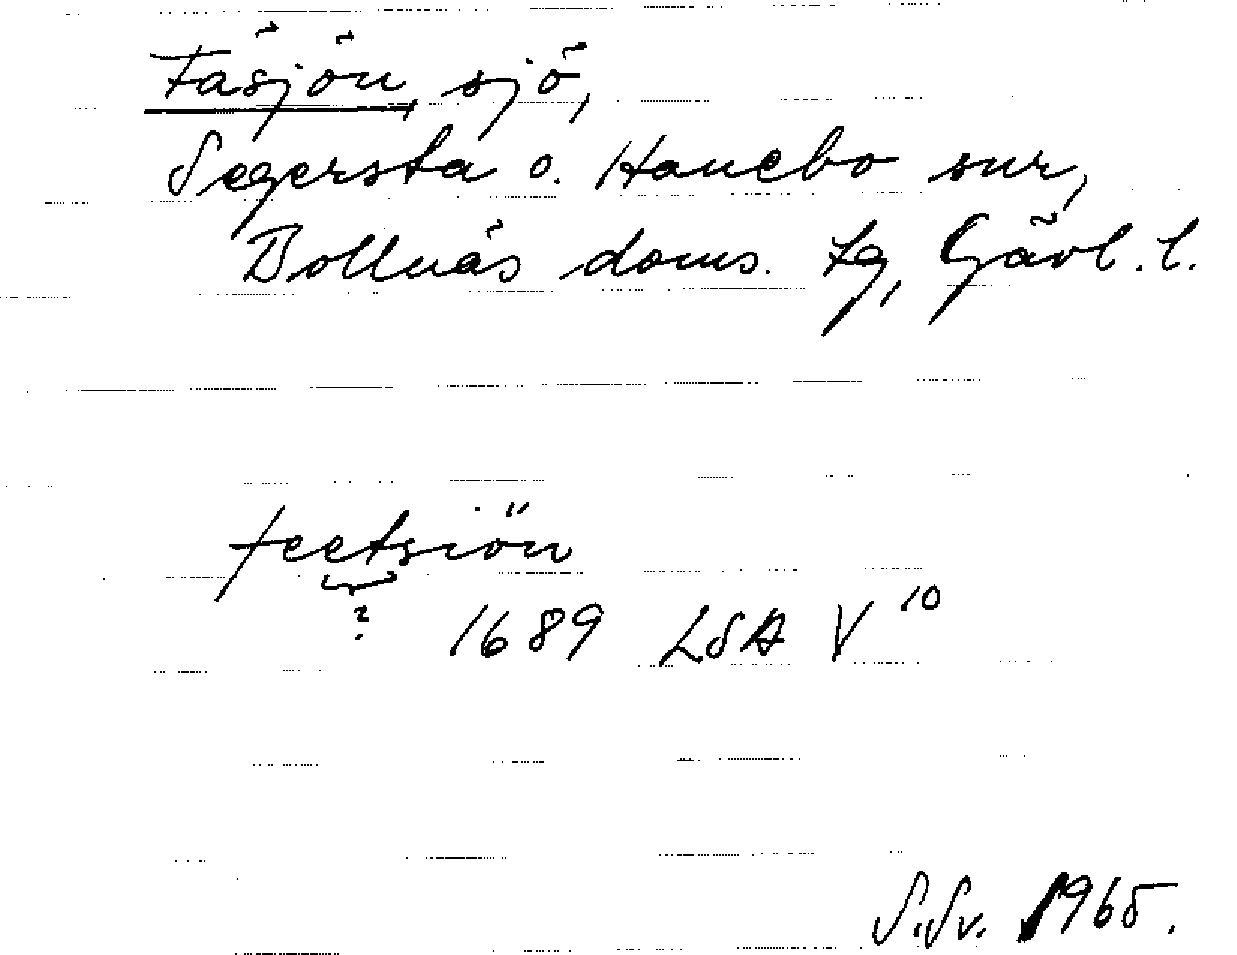 Fäsjön, sjö,
Segersta o. Hanebo snr,
Bollnäs doms. tg, Gävl. l.
feetsiön
? 1689 LSA V¹⁰
S.Sv. 1965.